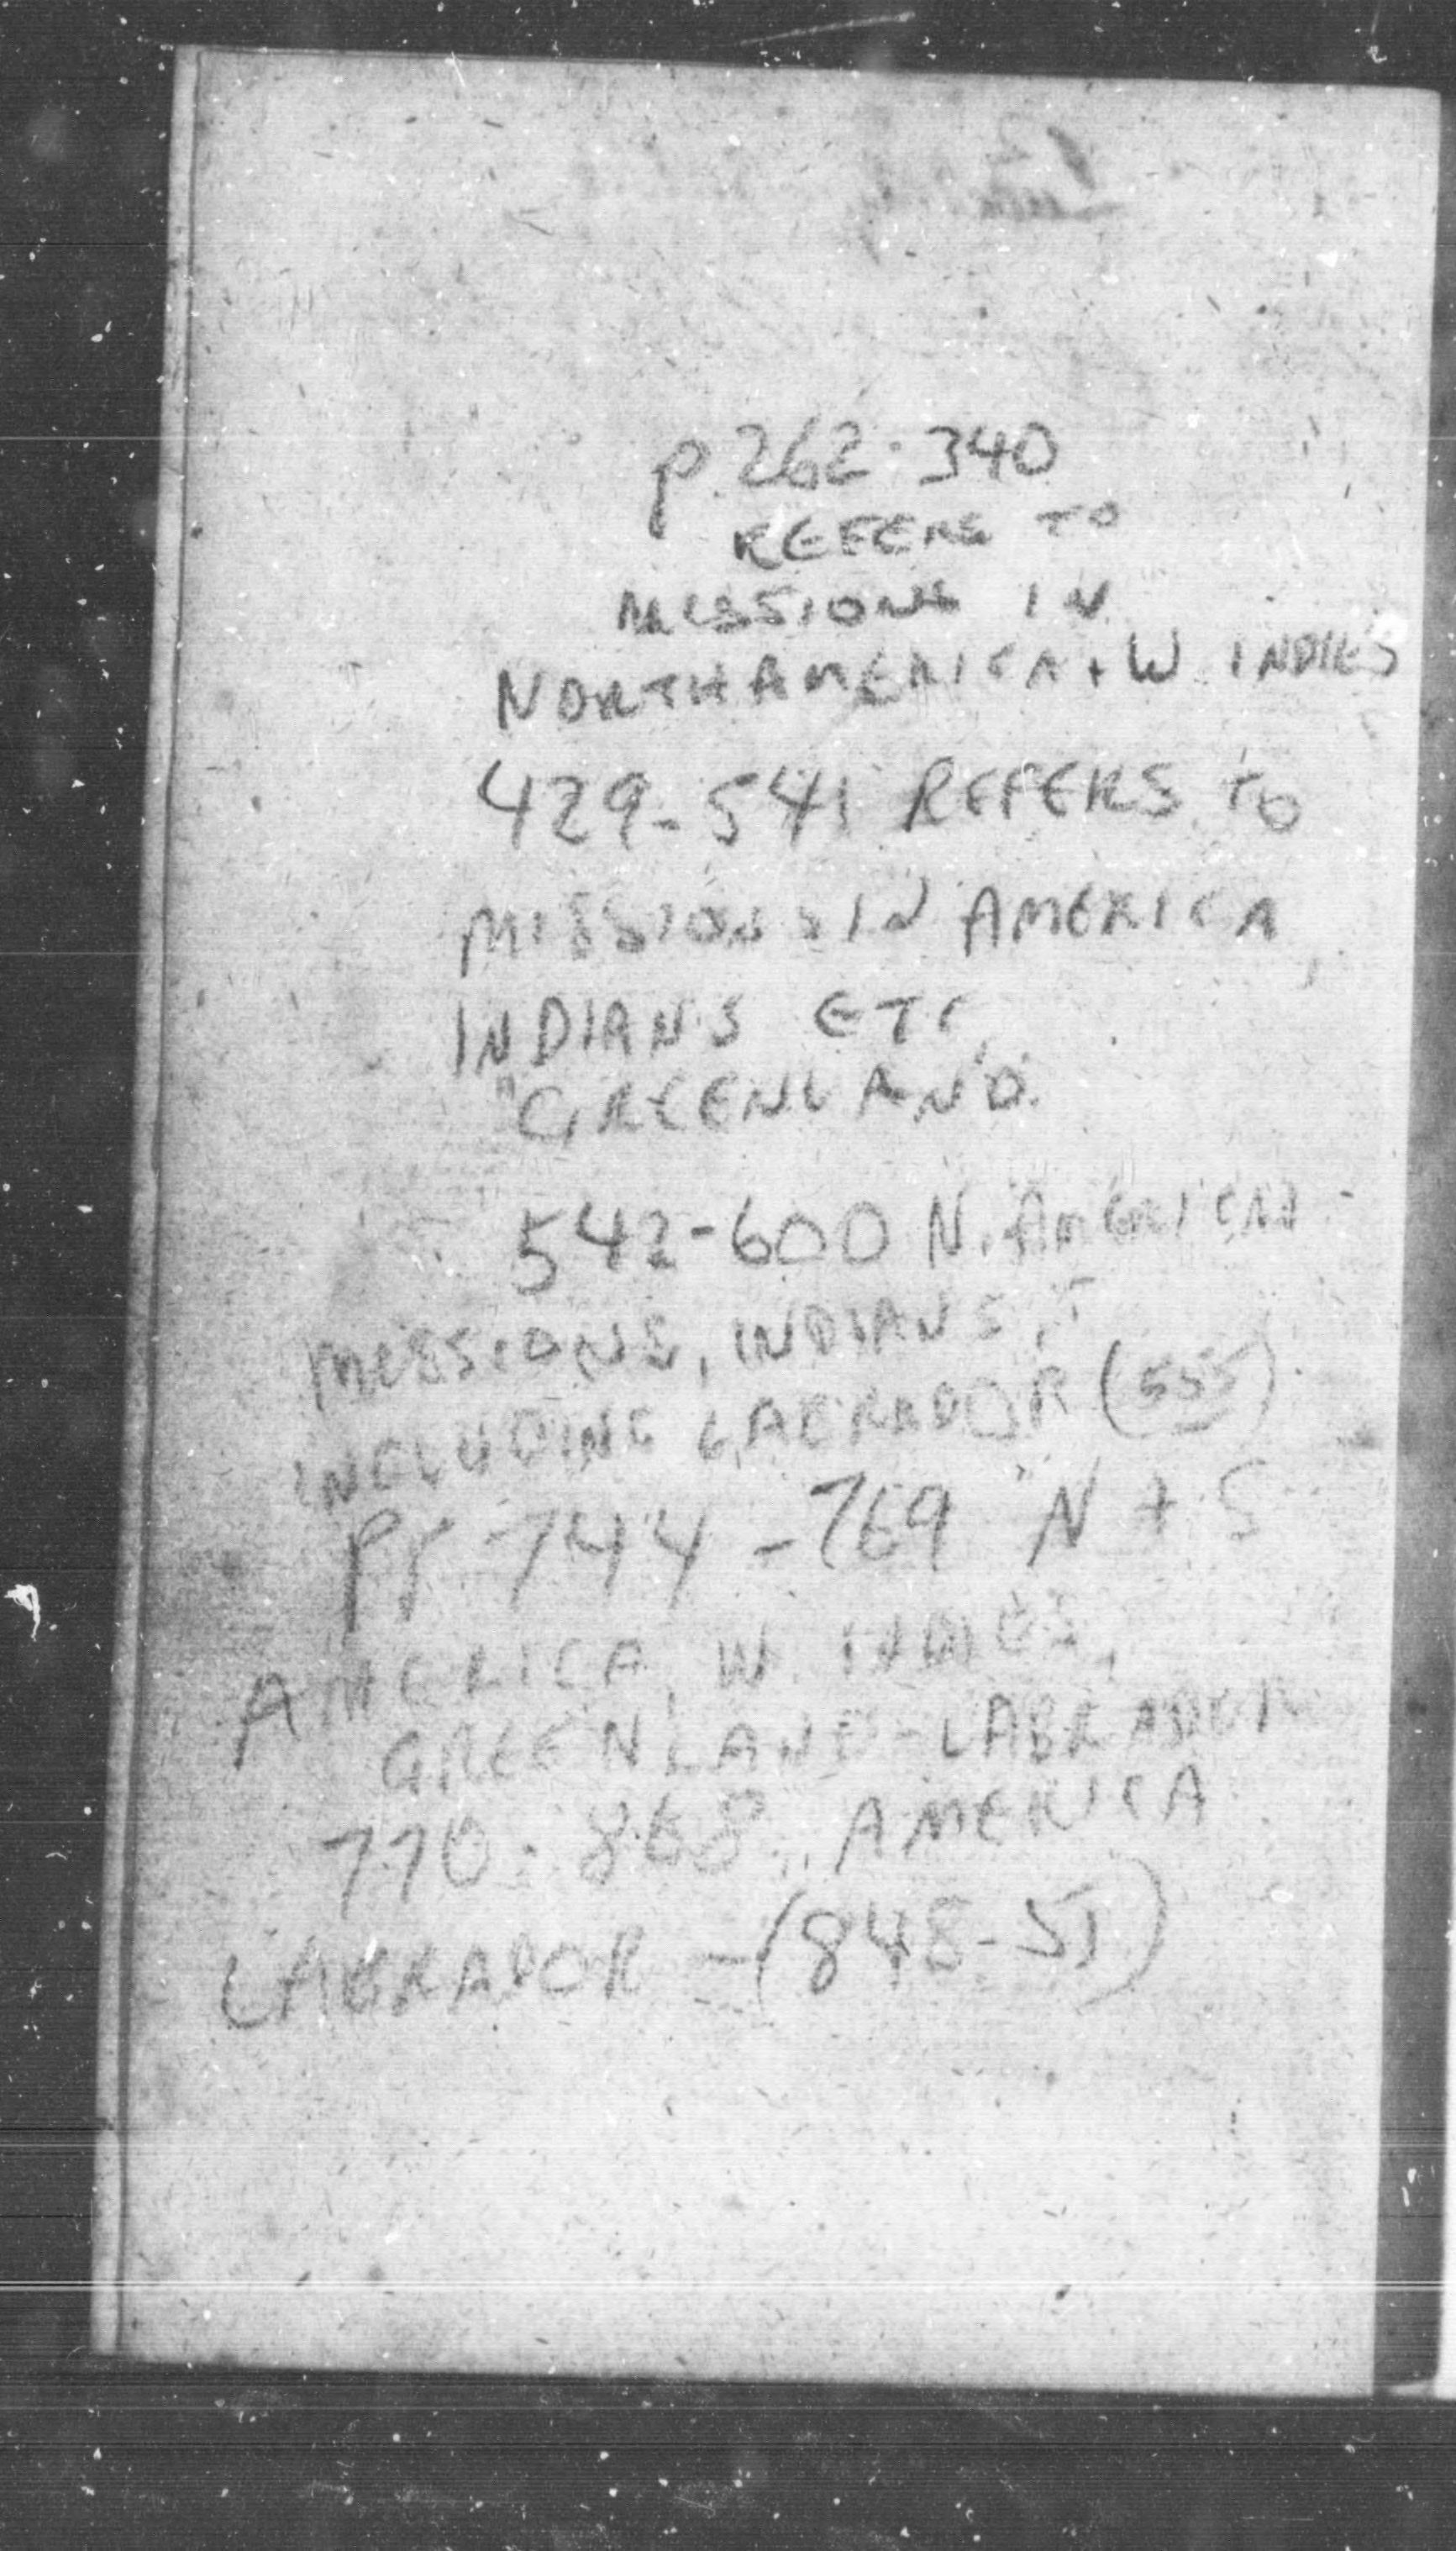 p. 262-340
REFERS TO
MISSIONS IN
NORTH AMERICA + W INDIES
429-541 REFERS TO
MISSIONS IN AMERICA,
INDIANS ETC,
"GREENLAND.
542-600 N. AMERICAN
MISSIONS, INDIANS,
INCLUDING LABRADOR (555)
PP 744-769 N + S
AMERICA, W. INDIES,
GREENLAND-LABRADOR
770-868, AMERICA
LABRADOR - (848-51)